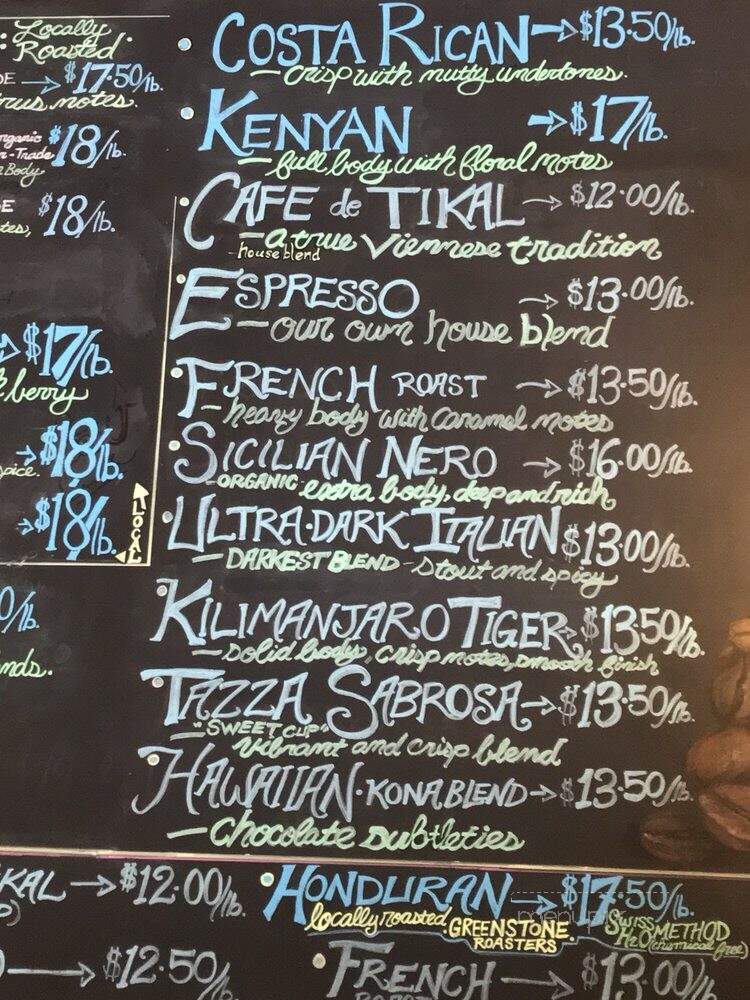 Locally
Roasted
→ $17.50/lb.
notes.
$18/lb.
Body
$18/lb.
$17/lb.
berry
→ $18/lb.
→ $18/lb.
LOCAL
/lb.
COSTA RICAN → $13.50/lb.
— crisp with nutty undertones.
KENYAN → $17/lb.
— full body with floral notes
CAFE de TIKAL → $12.00/lb.
— a true Viennese tradition
— house blend
ESPRESSO → $13.00/lb.
— our own house blend
FRENCH ROAST → $13.50/lb.
— heavy body with caramel notes
SICILIAN NERO → $16.00/lb.
— ORGANIC - extra body, deep and rich
ULTRA-DARK ITALIAN $13.00/lb.
— DARKEST BLEND - stout and spicy
KILIMANJARO TIGER → $13.50/lb.
— solid body, crisp notes, smooth finish
TAZZA SABROSA → $13.50/lb.
— "SWEET CUP"
vibrant and crisp blend
HAWAIIAN - KONA BLEND → $13.50/lb.
— Chocolate subtleties
→ $12.00/lb.
→ $12.50/lb.
HONDURAN → $17.50/lb.
locally roasted. GREENSTONE ROASTERS
SWISS H2O METHOD (chemical free)
FRENCH → $13.00/lb.